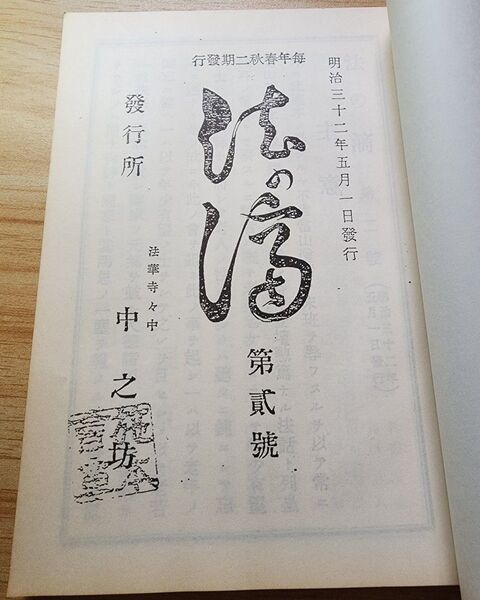 明治三十二年五月一日發行
每年春秋二期發行
法の滴
第貳號
發行所
法華寺々中
中之坊